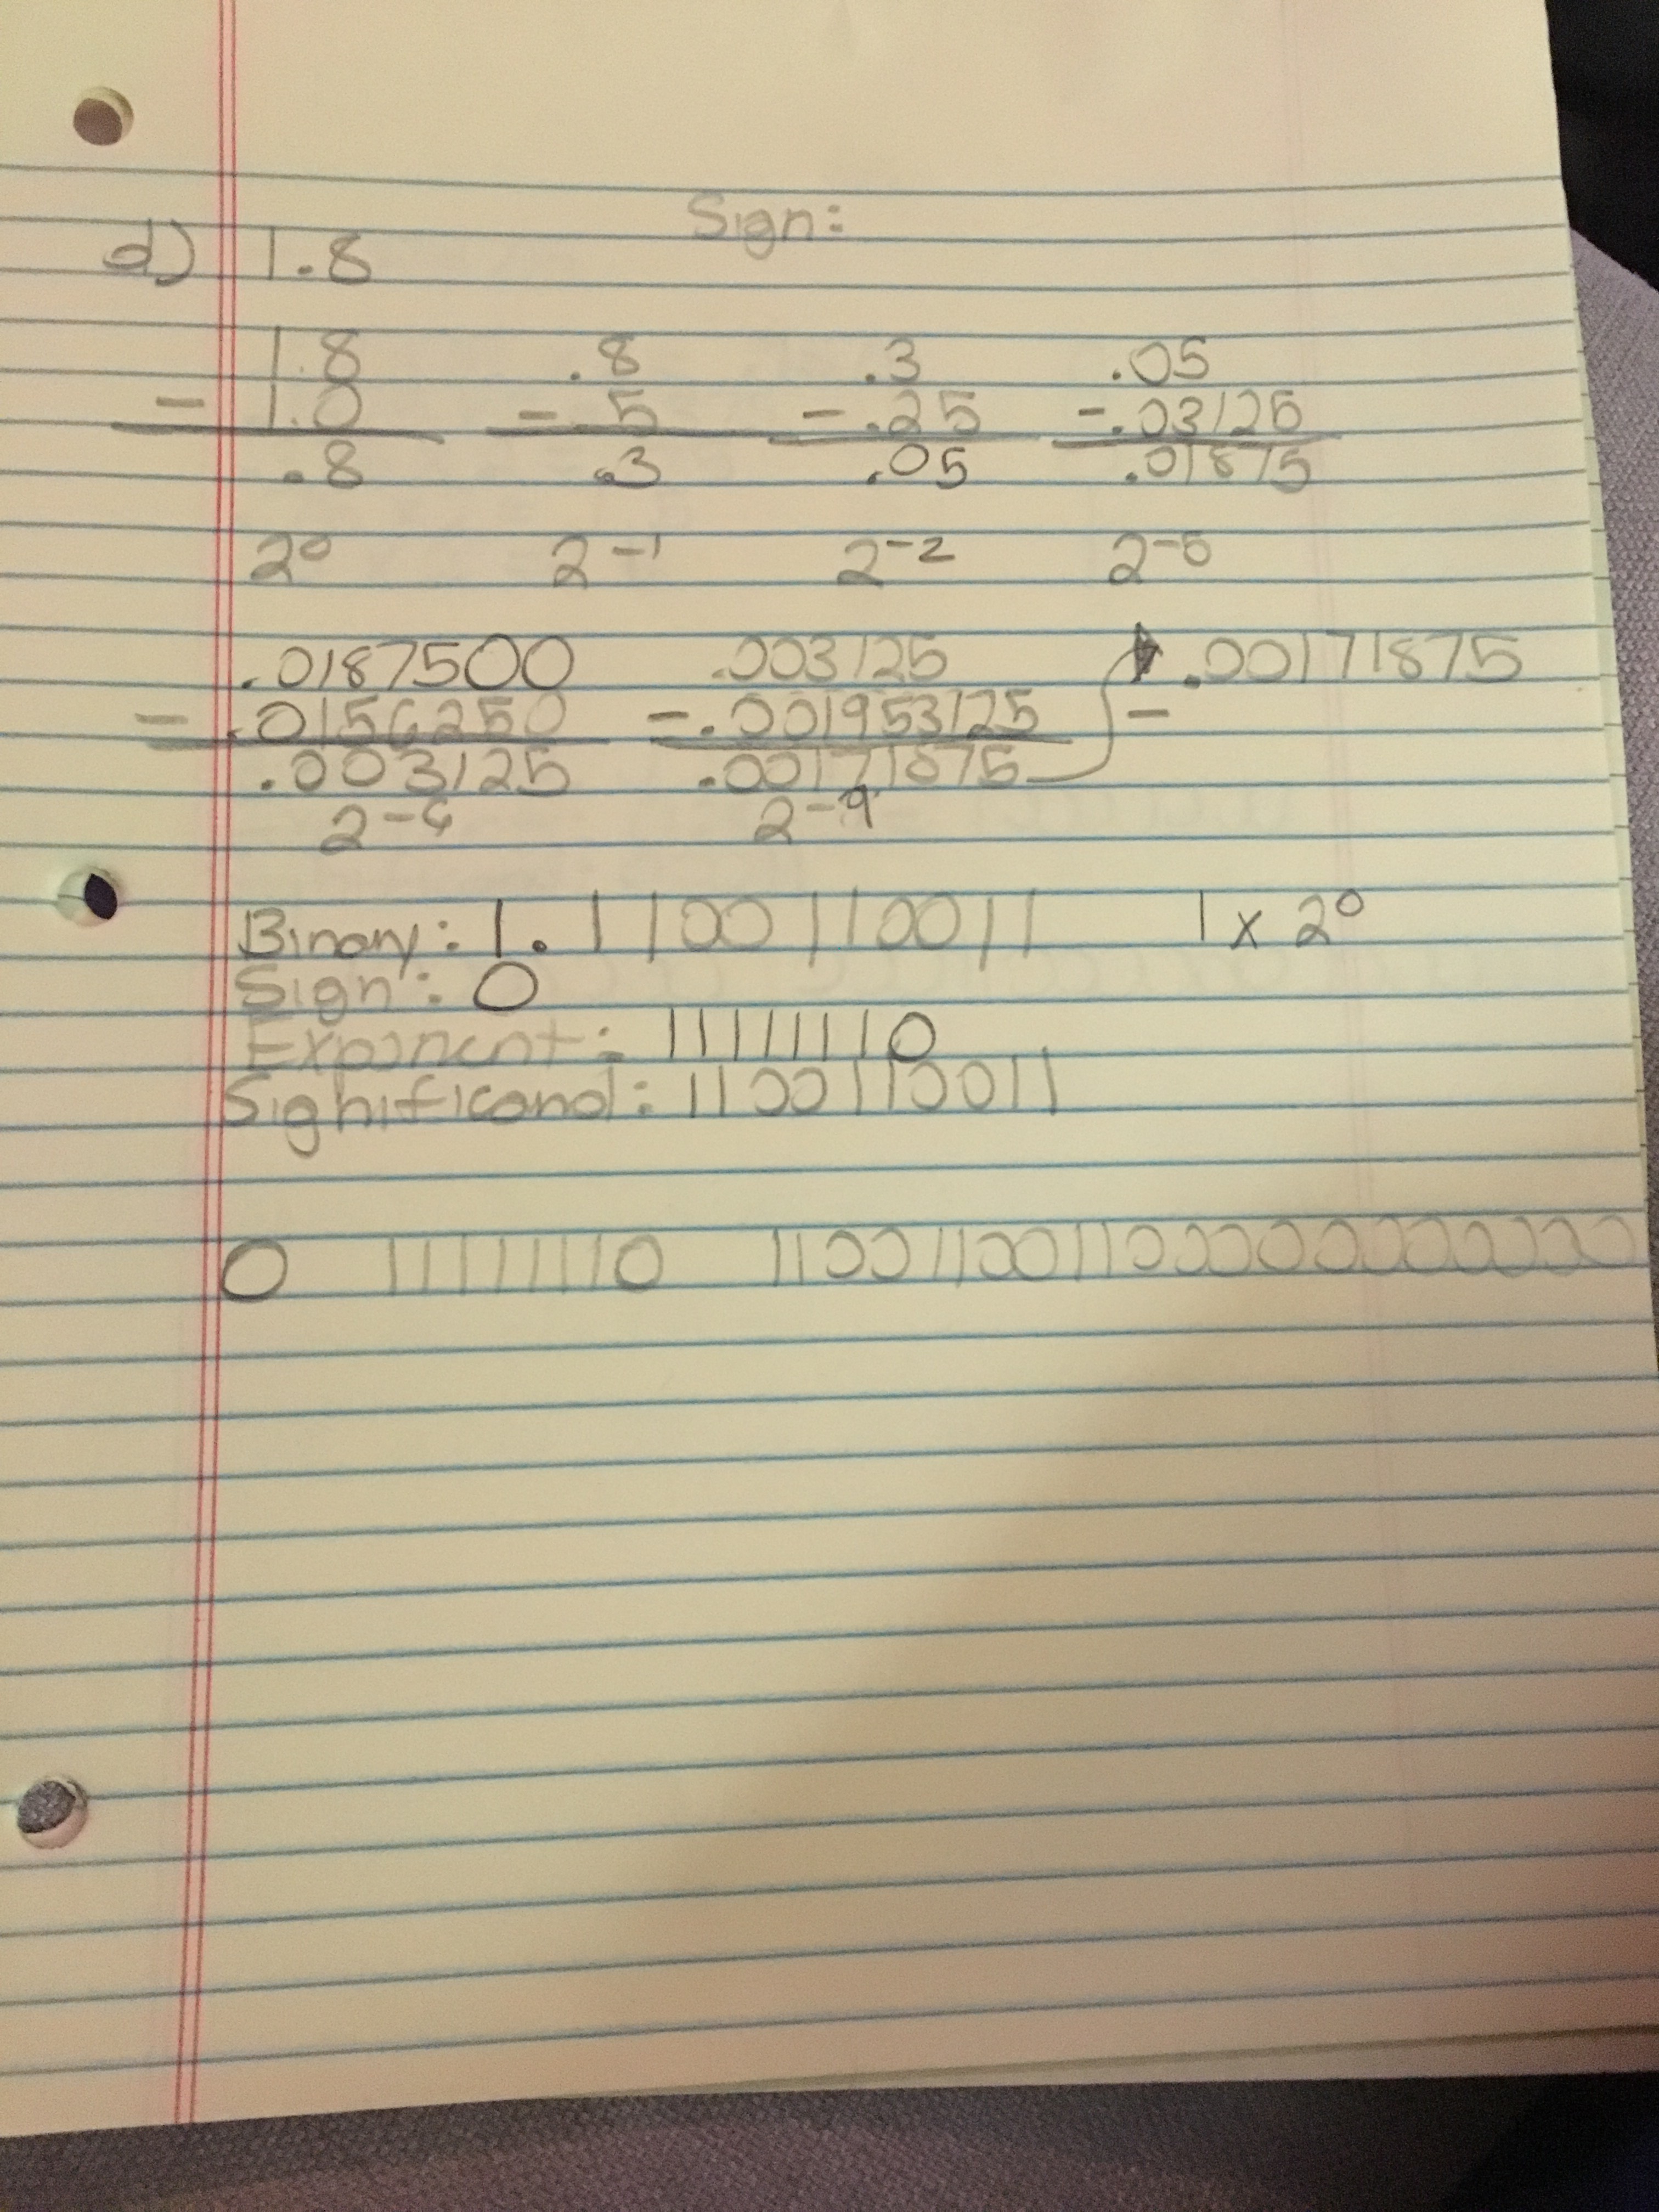 Sign:
d) 1.8
1.8 .8 .3 .05
- 1.0 - .5 - .25 - .03125
.8 .3 .05 .01875
2⁰ 2⁻¹ 2⁻² 2⁻⁵
.0187500 .003125 .00171875
- .0156250 - .001953125 -
.003125 .00171875
2⁻⁶ 2⁻⁹
Binary: 1.1100110011 1 x 2⁰
Sign: 0
Exponent: 11111110
Significand: 1100110011
0 11111110 11001100110000000000000